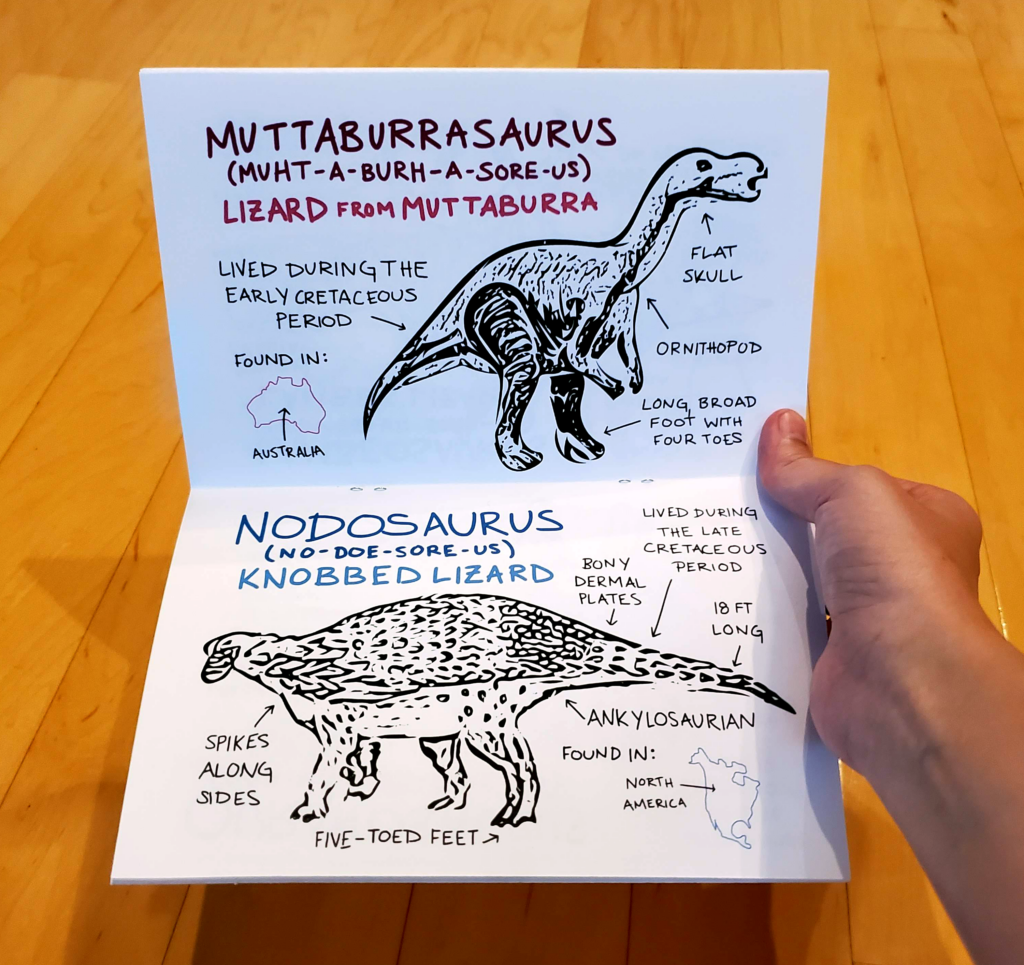 MUTTABURRASAURUS
(MUHT-A-BURH-A-SORE-US)
LIZARD FROM MUTTABURRA
LIVED DURING THE
EARLY CRETACEOUS
PERIOD
FOUND IN:
AUSTRALIA
FLAT
SKULL
ORNITHOPOD
LONG, BROAD
FOOT WITH
FOUR TOES
NODOSAURUS
(NO-DOE-SORE-US)
KNOBBED LIZARD
BONY
DERMAL
PLATES
LIVED DURING
THE LATE
CRETACEOUS
PERIOD
18 FT
LONG
SPIKES
ALONG
SIDES
ANKYLOSAURIAN
FOUND IN:
NORTH
AMERICA
FIVE-TOED FEET